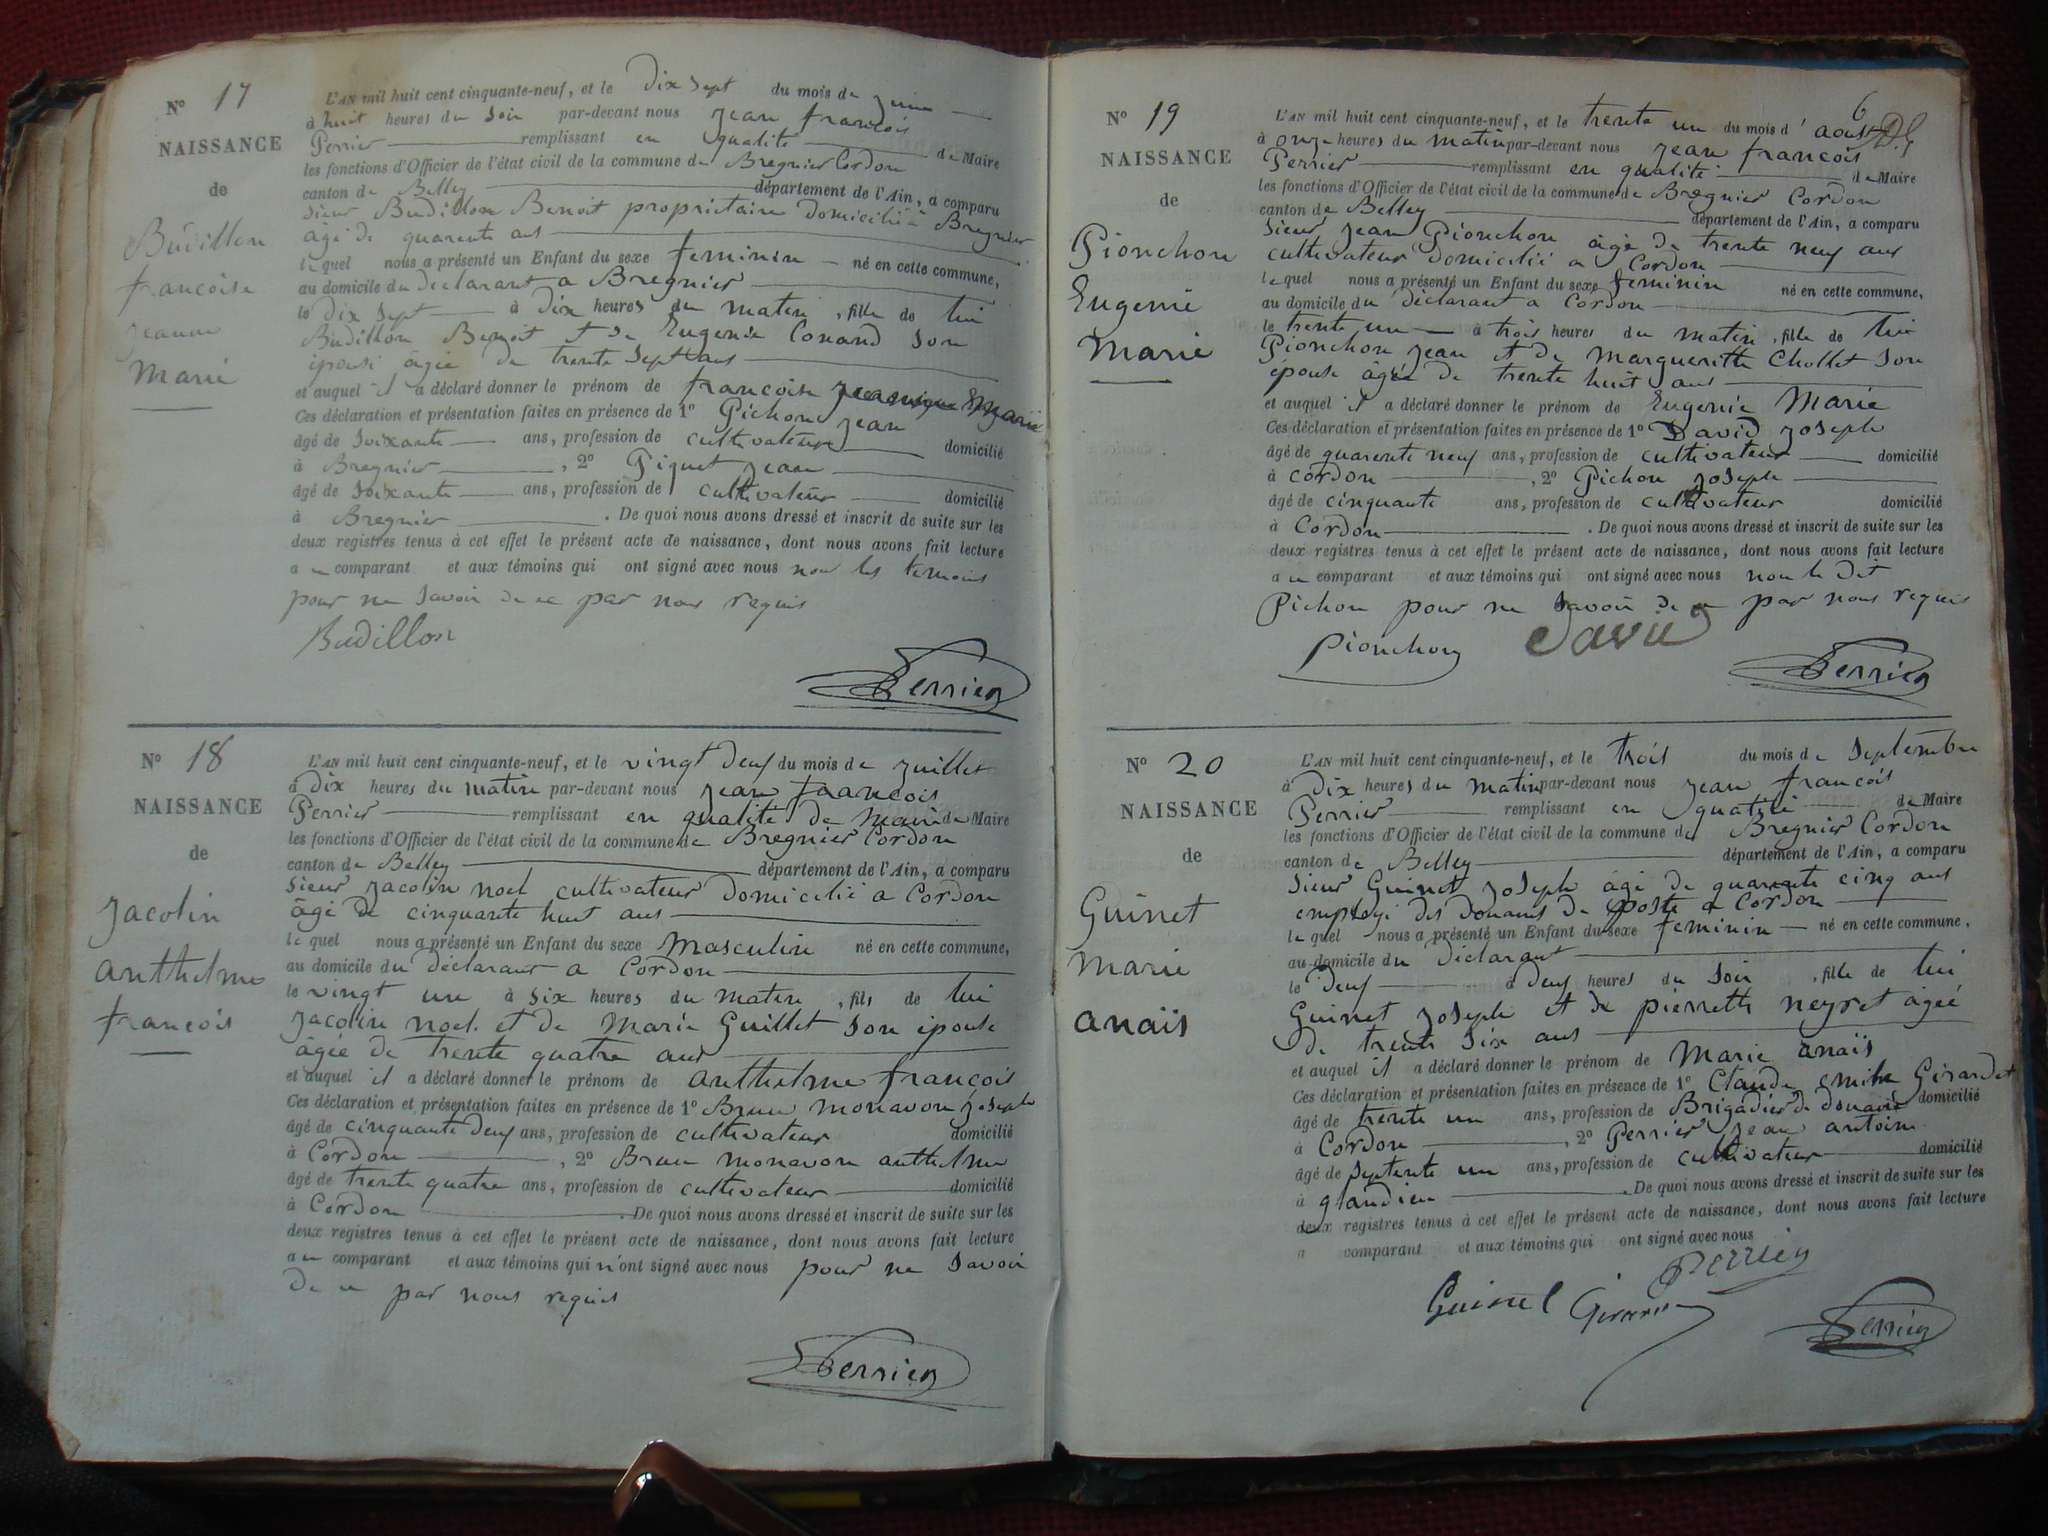 N° 17
NAISSANCE
de
Budillon
francoise
jeanne
Marie
L'AN mil huit cent cinquante-neuf, et le dix sept du mois de juin
à huit heures du Soir par-devant nous jean francois
Perrier remplissant en qualité de Maire
les fonctions d'Officier de l'état civil de la commune de Bregnier Cordon
canton de Belley département de l'Ain, a comparu
Sieur Budillon Benoit propriétaire domicilié à Bregnier
âgé de quarente ans
le quel nous a présenté un Enfant du sexe feminin né en cette commune,
au domicile du déclarant a Bregnier
le dix sept à dix heures du matin, fille de lui
Budillon Benoit et de Eugenie Conand Son
épouse âgée de trente sept ans
et auquel il a déclaré donner le prénom de francoise Marie
Ces déclaration et présentation faites en présence de 1° Pichon jean
âgé de Soixante ans, profession de cultivateur domicilié
à Bregnier, 2° Piquet jean
âgé de Soixante ans, profession de cultivateur domicilié
à Bregnier. De quoi nous avons dressé et inscrit de suite sur les
deux registres tenus à cet effet le présent acte de naissance, dont nous avons fait lecture
au comparant et aux témoins qui ont signé avec nous non les temoins
pour ne Savoir de ce par nous requis
Budillon
Perrier
N° 18
NAISSANCE
de
Jacolin
anthelme
francois
L'AN mil huit cent cinquante-neuf, et le vingt deux du mois de juillet
à dix heures du matin par-devant nous jean francois
Perrier remplissant en qualité de Maire de Maire
les fonctions d'Officier de l'état civil de la commune de Bregnier Cordon
canton de Belley département de l'Ain, a comparu
Sieur Jacolin noel cultivateur domicilié a Cordon
âgé de cinquante huit ans
le quel nous a présenté un Enfant du sexe Masculin né en cette commune,
au domicile du déclarant a Cordon
le vingt un à Six heures du matin, fils de lui
Jacolin noel et de Marie Guillet Son épouse
âgée de trente quatre ans
et auquel il a déclaré donner le prénom de anthelme francois
Ces déclaration et présentation faites en présence de 1° Brun monavon joseph
âgé de cinquante deux ans, profession de cultivateur domicilié
à Cordon, 2° Brun monavon anthelme
âgé de trente quatre ans, profession de cultivateur domicilié
à Cordon. De quoi nous avons dressé et inscrit de suite sur les
deux registres tenus à cet effet le présent acte de naissance, dont nous avons fait lecture
au comparant et aux témoins qui n'ont signé avec nous pour ne Savoir
de ce par nous requis
Perrier
6
N° 19
NAISSANCE
de
Pionchon
Eugenie
Marie
L'AN mil huit cent cinquante-neuf, et le trente un du mois d'aout
à onze heures du matin par-devant nous jean francois
Perrier remplissant en qualité de Maire
les fonctions d'Officier de l'état civil de la commune de Bregnier Cordon
canton de Belley département de l'Ain, a comparu
Sieur jean Pionchon âgé de trente neuf ans
cultivateur domicilié a Cordon
le quel nous a présenté un Enfant du sexe feminin né en cette commune,
au domicile du déclarant a Cordon
le trente un à trois heures du matin, fille de lui
Pionchon jean et de Margueritte Chollet Son
épouse âgée de trente huit ans
et auquel il a déclaré donner le prénom de Eugenie Marie
Ces déclaration et présentation faites en présence de 1° David joseph
âgé de quarente neuf ans, profession de cultivateur domicilié
à Cordon, 2° Pichon joseph
âgé de cinquante ans, profession de cultivateur domicilié
à Cordon. De quoi nous avons dressé et inscrit de suite sur les
deux registres tenus à cet effet le présent acte de naissance, dont nous avons fait lecture
au comparant et aux témoins qui ont signé avec nous non le dit
Pichon pour ne Savoir de ce par nous requis
Pionchon David
Perrier
N° 20
NAISSANCE
de
Guinet
Marie
anaïs
L'AN mil huit cent cinquante-neuf, et le trois du mois de Septembre
à dix heures du matin par-devant nous jean francois
Perrier remplissant en qualité de Maire
les fonctions d'Officier de l'état civil de la commune de Bregnier Cordon
canton de Belley département de l'Ain, a comparu
Sieur Guinet joseph âgé de quarante cinq ans
employé des douanes de poste a Cordon
le quel nous a présenté un Enfant du sexe feminin né en cette commune,
au domicile du déclarant
le deux à deux heures du Soir, fille de lui
Guinet joseph et de pierrette neyret âgée
de trente Six ans
et auquel il a déclaré donner le prénom de Marie anaïs
Ces déclaration et présentation faites en présence de 1° Claude emile Girardet
âgé de trente un ans, profession de Brigadier de douane domicilié
à Cordon, 2° Perrier jean antoine
âgé de septente un ans, profession de cultivateur domicilié
à glandieu. De quoi nous avons dressé et inscrit de suite sur les
deux registres tenus à cet effet le présent acte de naissance, dont nous avons fait lecture
a comparant et aux témoins qui ont signé avec nous
Perrier
Guinet
Perrier